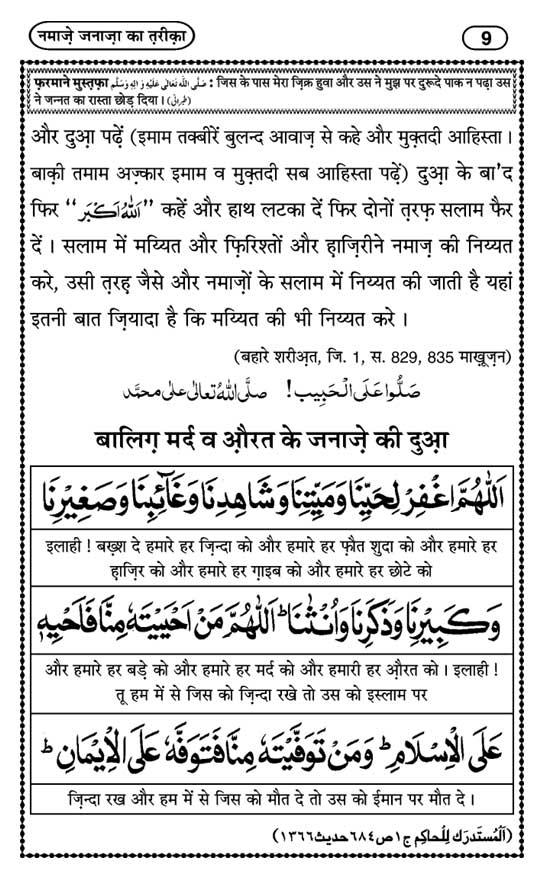 नमाज़े जनाज़ा का त़रीक़ा
9
फ़रमाने मुस्त़फ़ा صَلَّى اللهُ تَعَالٰى عَلَيْهِ وَاٰلِهٖ وَسَلَّم : जिस के पास मेरा ज़िक्र हुवा और उस ने मुझ पर दुरूदे पाक न पढ़ा उस
ने जन्नत का रास्ता छोड़ दिया । (طبرانی)
और दुआ़ पढ़ें (इमाम तक्बीरें बुलन्द आवाज़ से कहे और मुक़्तदी आहिस्ता ।
बाक़ी तमाम अज़्कार इमाम व मुक़्तदी सब आहिस्ता पढ़ें) दुआ़ के बा'द
फिर “اَللهُ اَكْبَر” कहें और हाथ लटका दें फिर दोनों त़रफ़ सलाम फैर
दें । सलाम में मय्यित और फ़िरिश्तों और ह़ाज़िरीने नमाज़ की निय्यत
करे, उसी त़रह़ जैसे और नमाज़ों के सलाम में निय्यत की जाती है यहां
इतनी बात ज़ियादा है कि मय्यित की भी निय्यत करे ।
(बहारे शरीअ़त, जि. 1, स. 829, 835 माख़ूज़न)
صَلُّوا عَلَى الْحَبِيب! صلَّى اللهُ تعالٰى على محمَّد
बालिग़ मर्द व औ़रत के जनाज़े की दुआ़
اَللّٰهُمَّ اغْفِرْ لِحَيِّنَا وَمَيِّتِنَا وَشَاهِدِنَا وَغَآئِبِنَا وَصَغِيْرِنَا
इलाही ! बख़्श दे हमारे हर ज़िन्दा को और हमारे हर फ़ौत शुदा को और हमारे हर
ह़ाज़िर को और हमारे हर ग़ाइब को और हमारे हर छोटे को
وَكَبِيْرِنَا وَذَكَرِنَا وَاُنْثٰنَا ؕ اَللّٰهُمَّ مَنْ اَحْيَيْتَهٗ مِنَّا فَاَحْيِهٖ
और हमारे हर बड़े को और हमारे हर मर्द को और हमारी हर औ़रत को । इलाही !
तू हम में से जिस को ज़िन्दा रखे तो उस को इस्लाम पर
عَلَى الْاِسْلَامِ ؕ وَمَنْ تَوَفَّيْتَهٗ مِنَّا فَتَوَفَّهٗ عَلَى الْاِيْمَانِ ؕ
ज़िन्दा रख और हम में से जिस को मौत दे तो उस को ईमान पर मौत दे ।
(اَلْمُستَدرَك لِلْحاكِم ج ١ ص ٦٨٤ حديث ١٣٦٦)